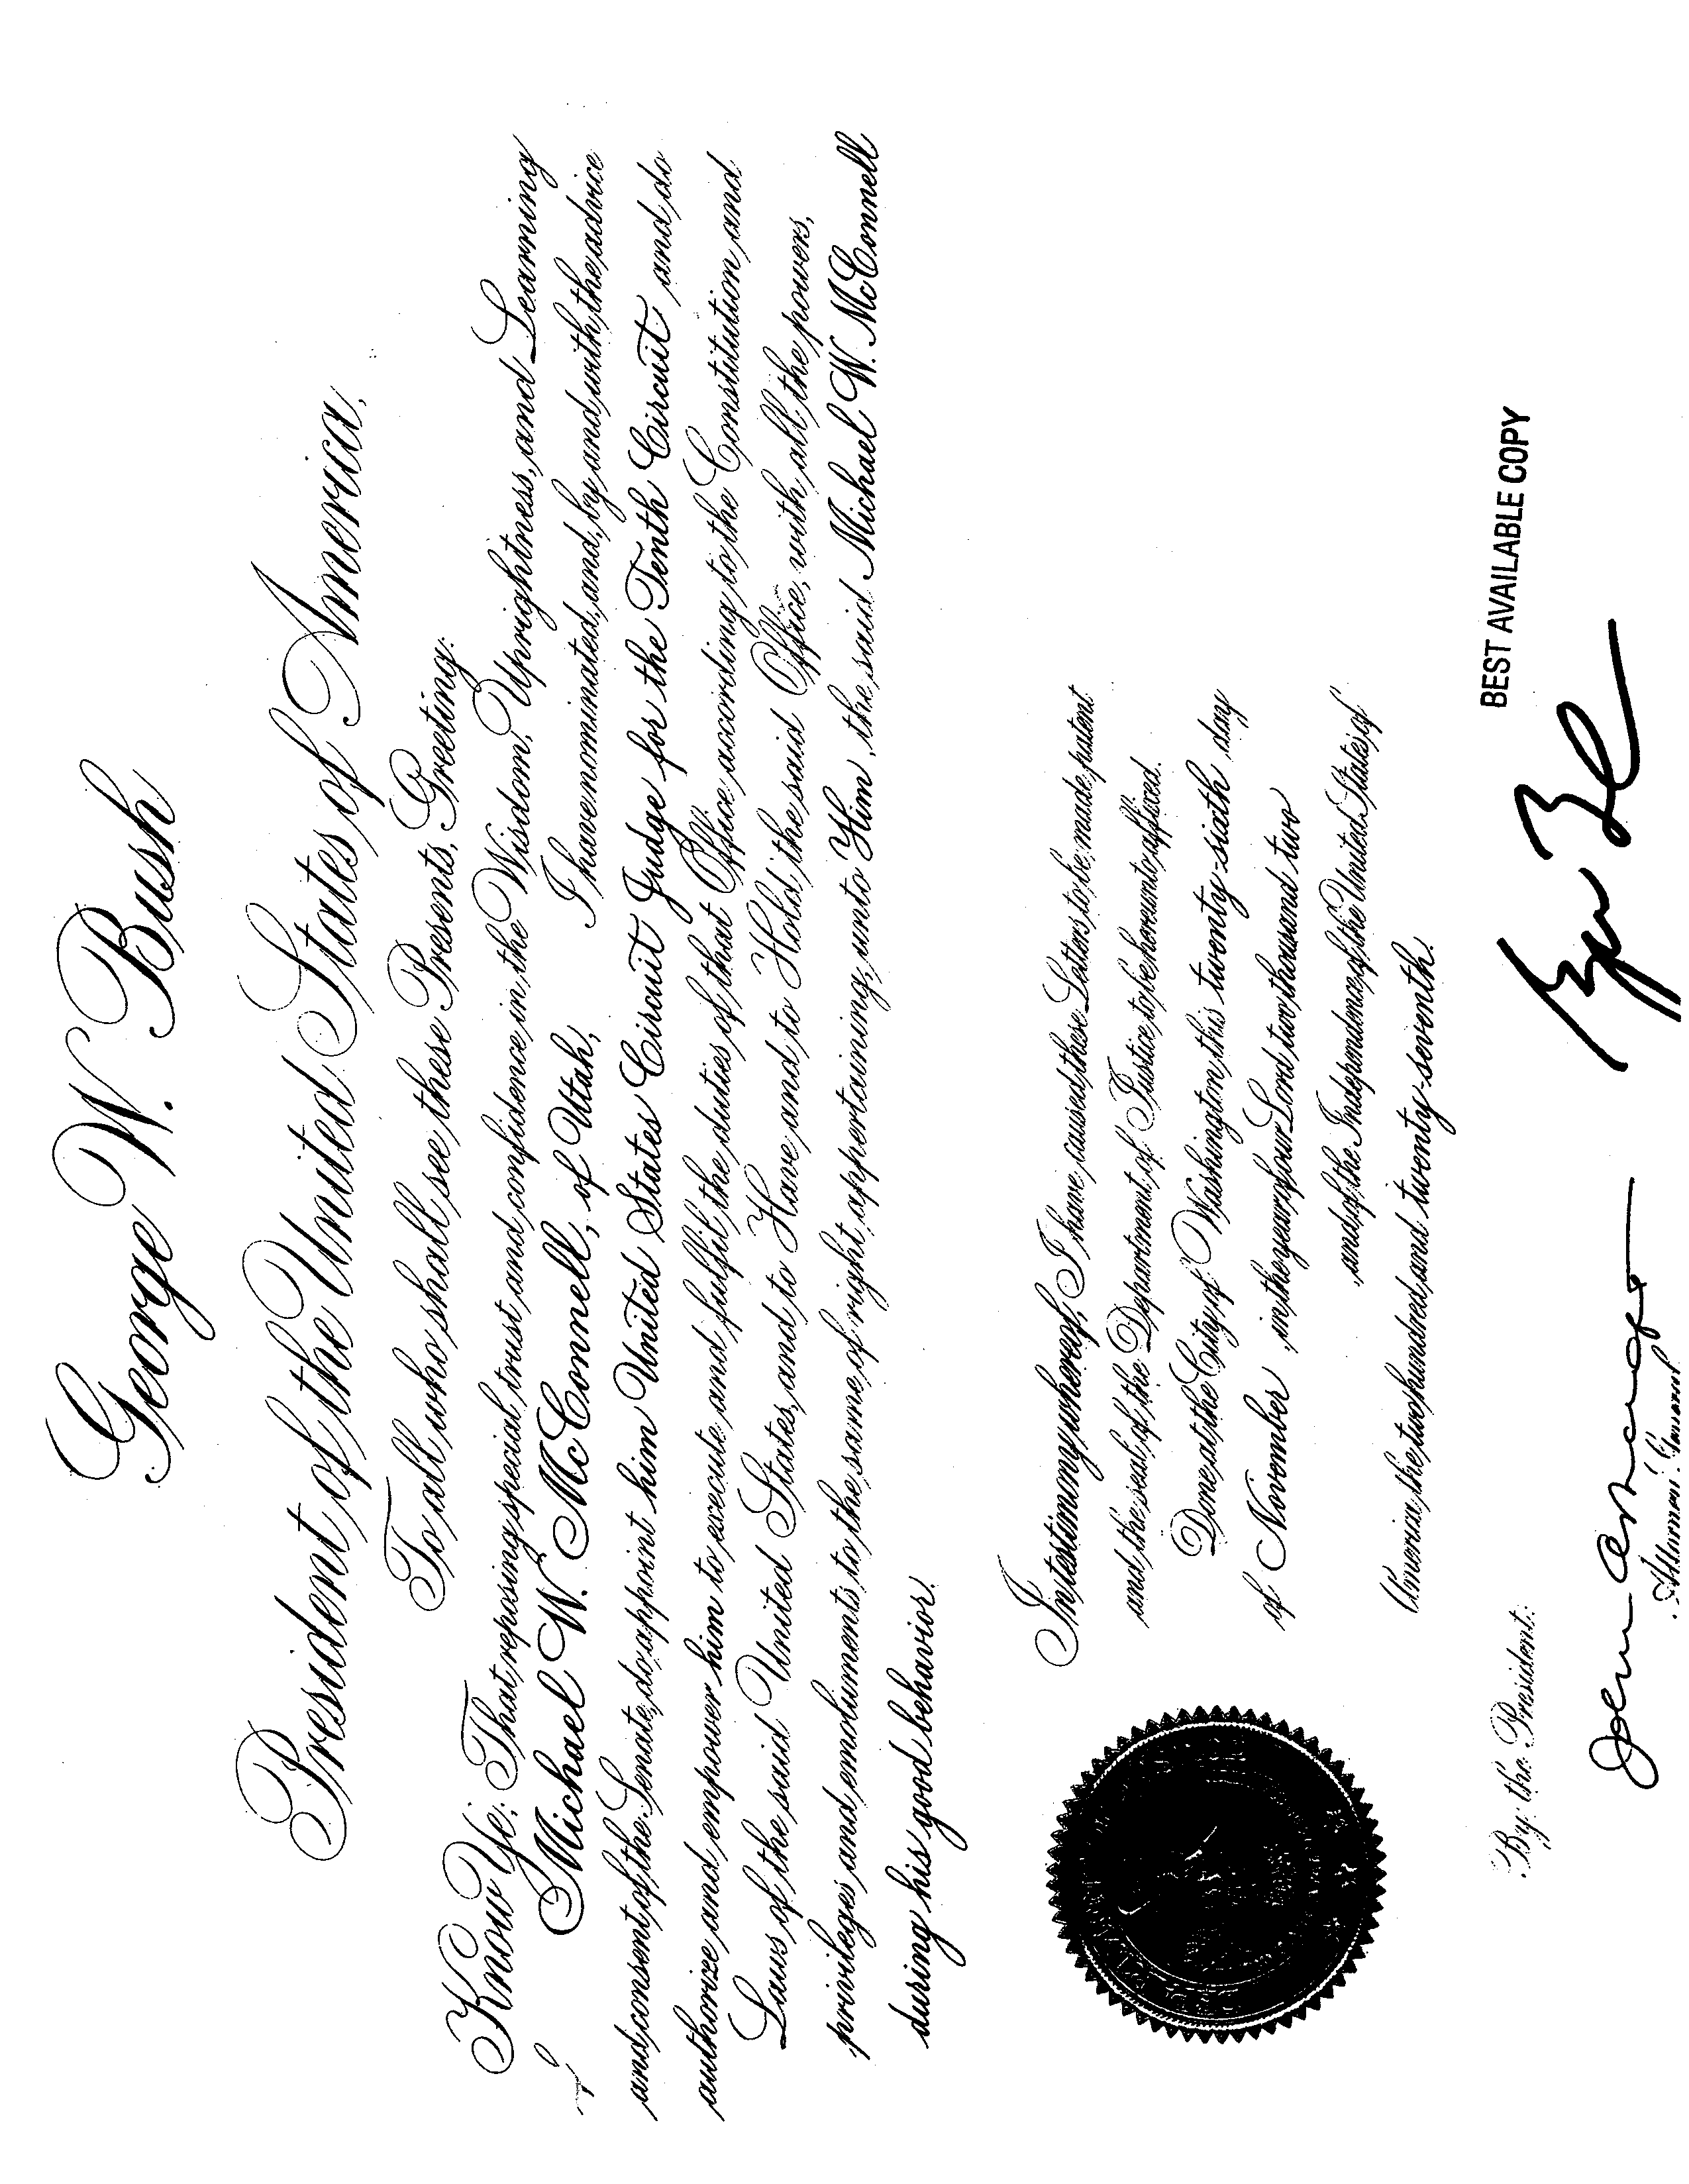 George W. Bush
President of the United States of America,
To all who shall see these Presents, Greeting:
Know Ye: That reposing special trust and confidence in the Wisdom, Uprightness, and Learning
of Michael W. McConnell, of Utah, I have nominated, and, by and with the advice
and consent of the Senate, do appoint him United States Circuit Judge for the Tenth Circuit and do
authorize and empower him to execute and fulfil the duties of that Office according to the Constitution and
Laws of the said United States, and to Have and to Hold the said Office, with all the powers,
privileges and emoluments to the same of right appertaining, unto Him, the said Michael W. McConnell
during his good behavior.
In testimony whereof, I have caused these Letters to be made patent
and the seal of the Department of Justice to be hereunto affixed.
Done at the City of Washington this twenty-sixth day
of November in the year of our Lord two thousand two
and of the Independence of the United States of
America the two hundred and twenty-seventh.
BEST AVAILABLE COPY
By the President:
John Ashcroft
Attorney General